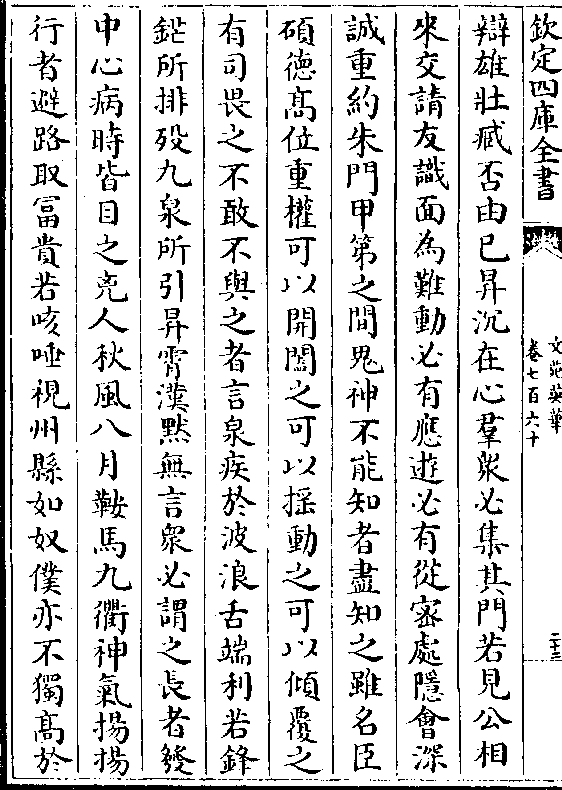 欽定四庫全書
文苑英華
卷七百六十
二十三
辯雄壯臧否由已昇沉在心羣衆必集其門若見公相
來交請友識面為難動必有應遊必有從密處隱會深
誠重約朱門甲第之間鬼神不能知者盡知之雖名臣
碩德髙位重權可以開闔之可以揺動之可以傾覆之
有司畏之不敢不與之者言泉疾於波浪舌端利若鋒
鋩所排殁九泉所引昇霄漢黙無言衆必謂之長者發
中心病時皆目之兇人秋風八月鞍馬九衢神氣揚揚
行者避路取冨貴若咳唾視州縣如奴僕亦不獨髙於